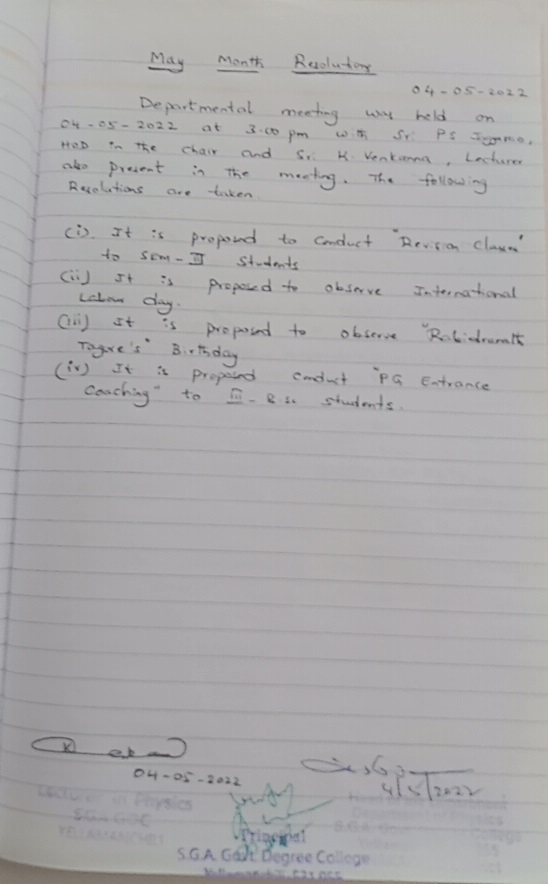 May Month Resolutions
04-05-2022
Departmental meeting was held on
04-05-2022 at 3.00 pm with Sri PS
HOD in the chair and Sri K. Venkanna, Lecturer
also present in the meeting. The following
Resolutions are taken.
(i). It is proposed to conduct "Revision Classes"
to SEM-II students
(ii) It is proposed to observe International
Labour day.
(iii) It is proposed to observe "Rabidranath
Tagore's" Birthday
(iv) It is proposed conduct "PG Entrance
Coaching" to III-B.Sc students.
04-05-2022
4/5/2022
Lecturer in Physics
S.G.A GDC
YELLAMANCHILI
Principal
S.G.A. Govt. Degree College
Department of Physics
College